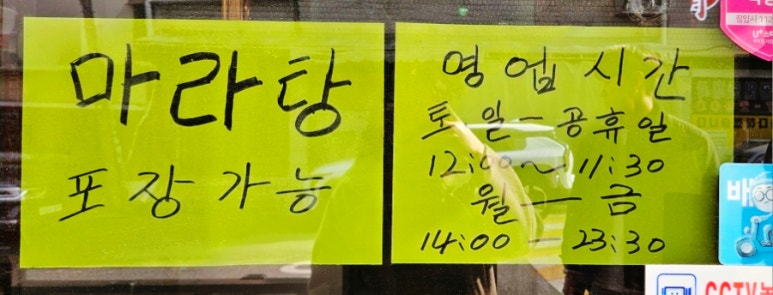 마라탕
포장가능
영업시간
토일-공휴일
12:00~11:30
월-금
14:00-23:30
배
CCTV녹